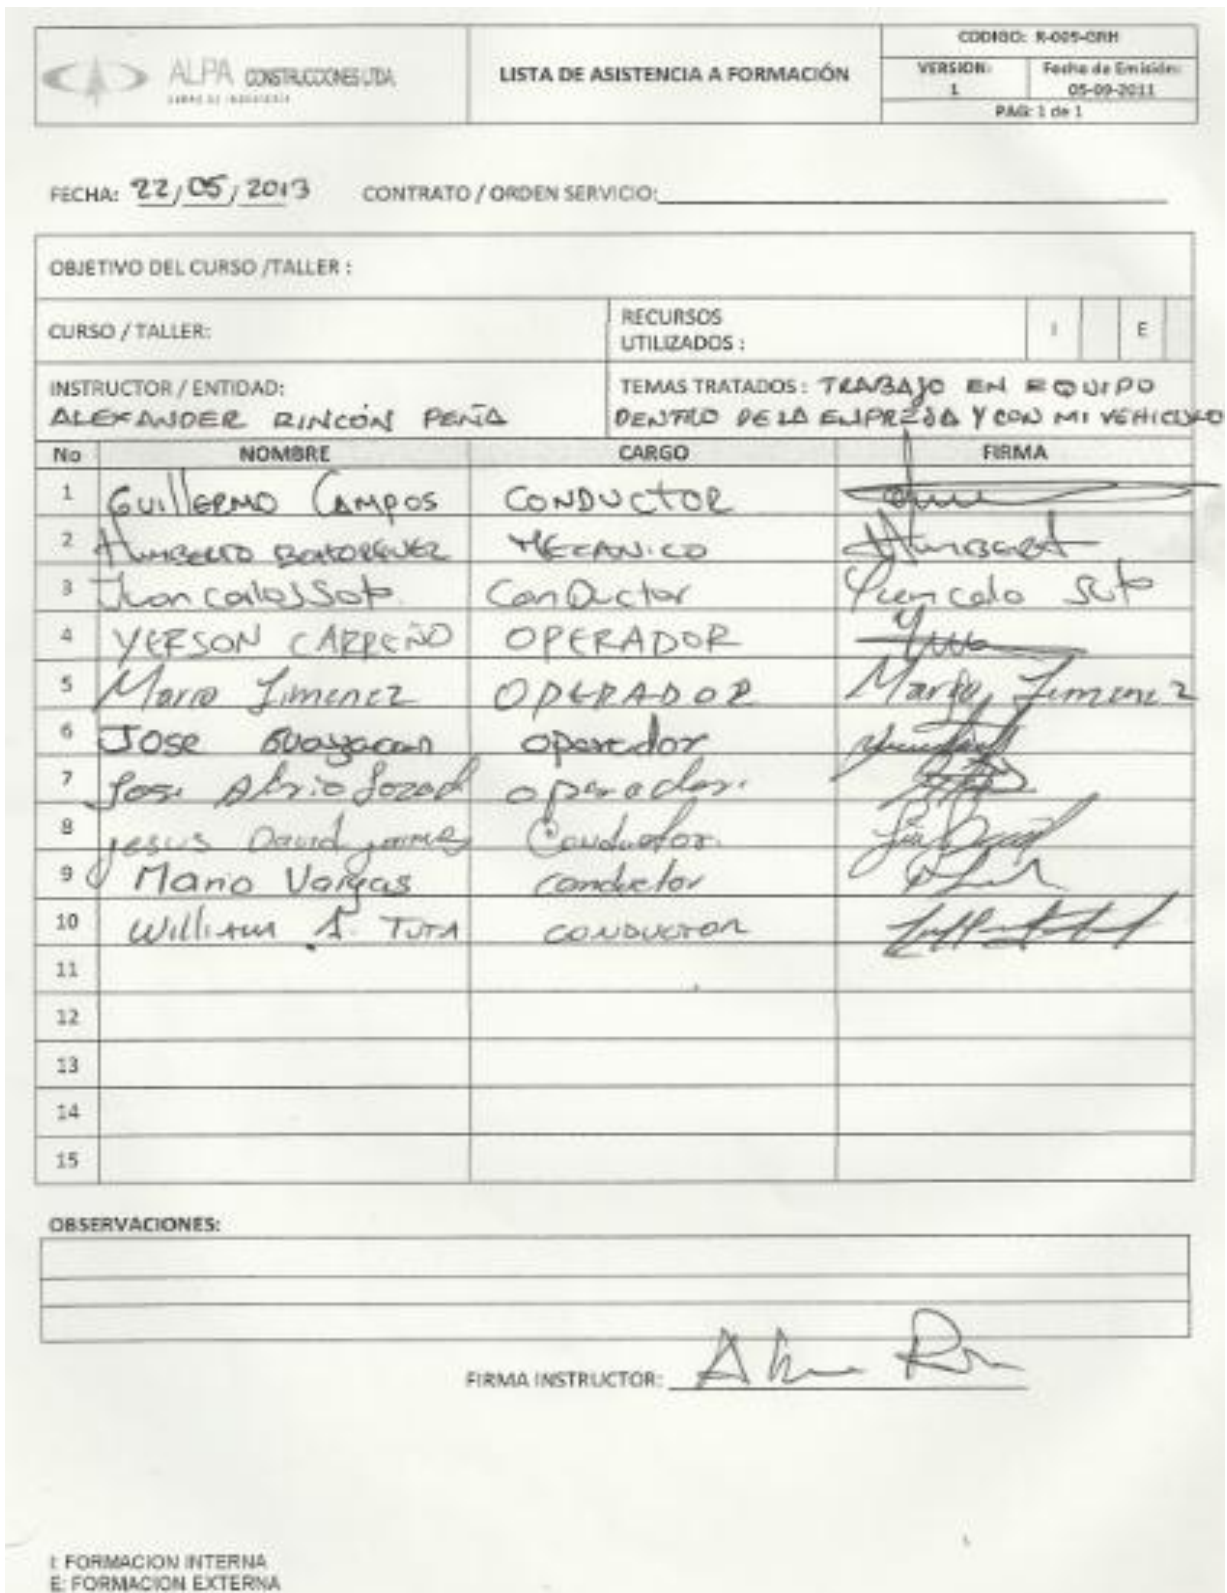 ALPA CONSTRUCCIONES LTDA.
LISTA DE ASISTENCIA A FORMACIÓN
CODIGO: R-009-GRH
VERSION: 1
Fecha de Emisión: 05-09-2011
PAG: 1 de 1
FECHA: 22/05/2013 CONTRATO / ORDEN SERVICIO:
OBJETIVO DEL CURSO /TALLER :
CURSO / TALLER:
RECURSOS UTILIZADOS : I E
INSTRUCTOR / ENTIDAD:
ALEXANDER RINCÓN PEÑA
TEMAS TRATADOS : TRABAJO EN EQUIPO
DENTRO DE LA EMPRESA Y CON MI VEHICULO
No NOMBRE CARGO FIRMA
1 GUILLERMO CAMPOS CONDUCTOR
2 HUMBERTO MECANICO
3 Juan carlos Soto. ConDuctor Soto
4 YERSON CARREÑO OPERADOR
5 Mario Jimenez OPERADOR Mario Jimenez
6 JOSE GUAYACAN operador
7 Jose operador.
8 jesus David Conductor.
9 Mario Vargas conductor
10 William A. TUTA CONDUCTOR
11
12
13
14
15
OBSERVACIONES:
FIRMA INSTRUCTOR:
I: FORMACION INTERNA
E: FORMACION EXTERNA